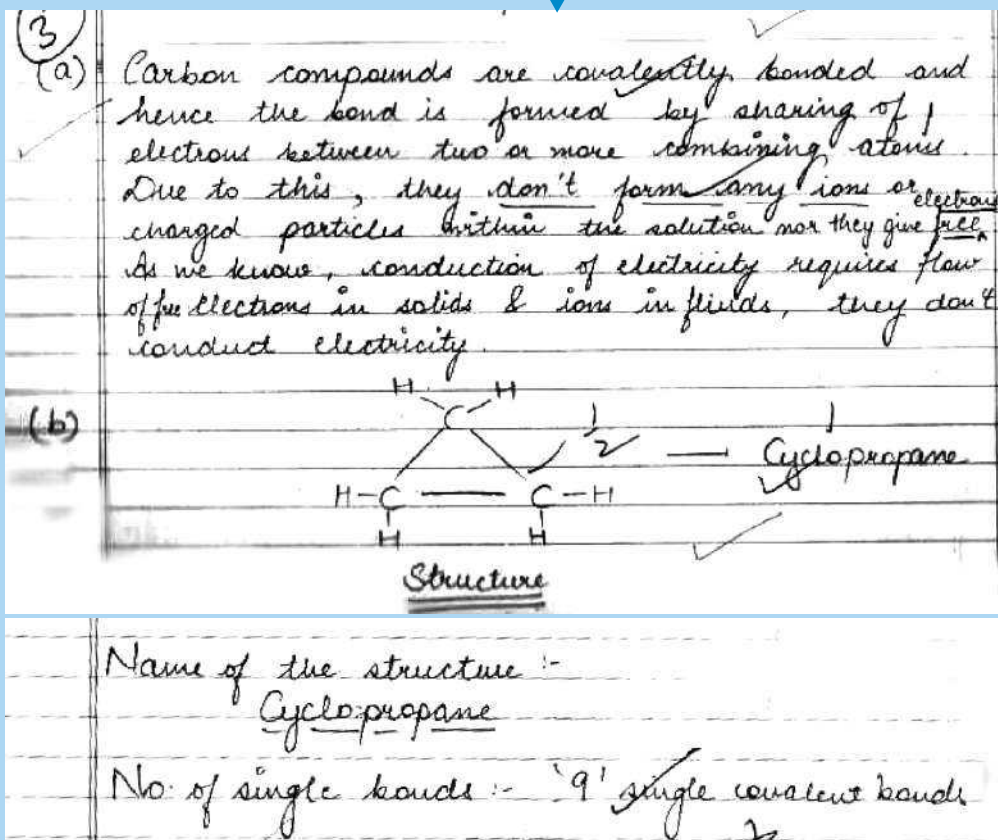 3
(a) Carbon compounds are covalently bonded and
hence the bond is formed by sharing of 1
electrons between two or more combining atoms.
Due to this, they don't form any ions or
electrons
charged particles within the solution nor they give free
As we know, conduction of electricity requires flow
of free electrons in solids & ions in fluids, they don't
conduct electricity.
(b)
H H
C 1/2 — Cyclopropane 1
H-C — C-H
H H
Structure
Name of the structure :-
Cyclopropane
No. of single bonds :- '9' single covalent bonds